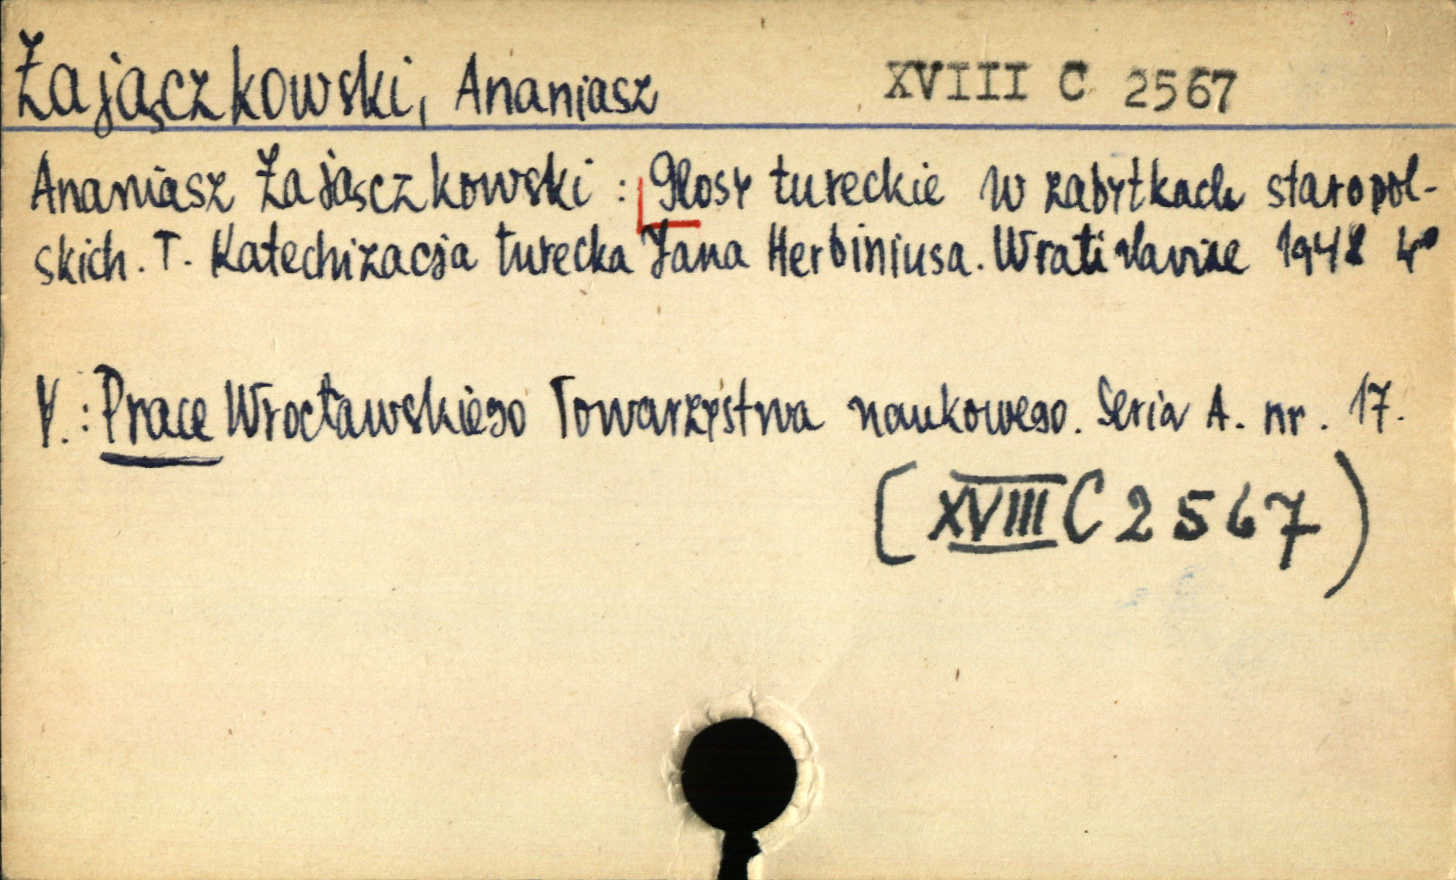 Zajączkowski, Ananiasz XVIII C 2567
Ananiasz Zajączkowski: Glosy tureckie w zabytkach staropol-
skich. T. Katechizacja turecka Jana Herbiniusa. Wratislaviae 1948 4°
V.: Prace Wrocławskiego Towarzystwa naukowego. Seria A. nr. 17.
(XVIII C 2567)